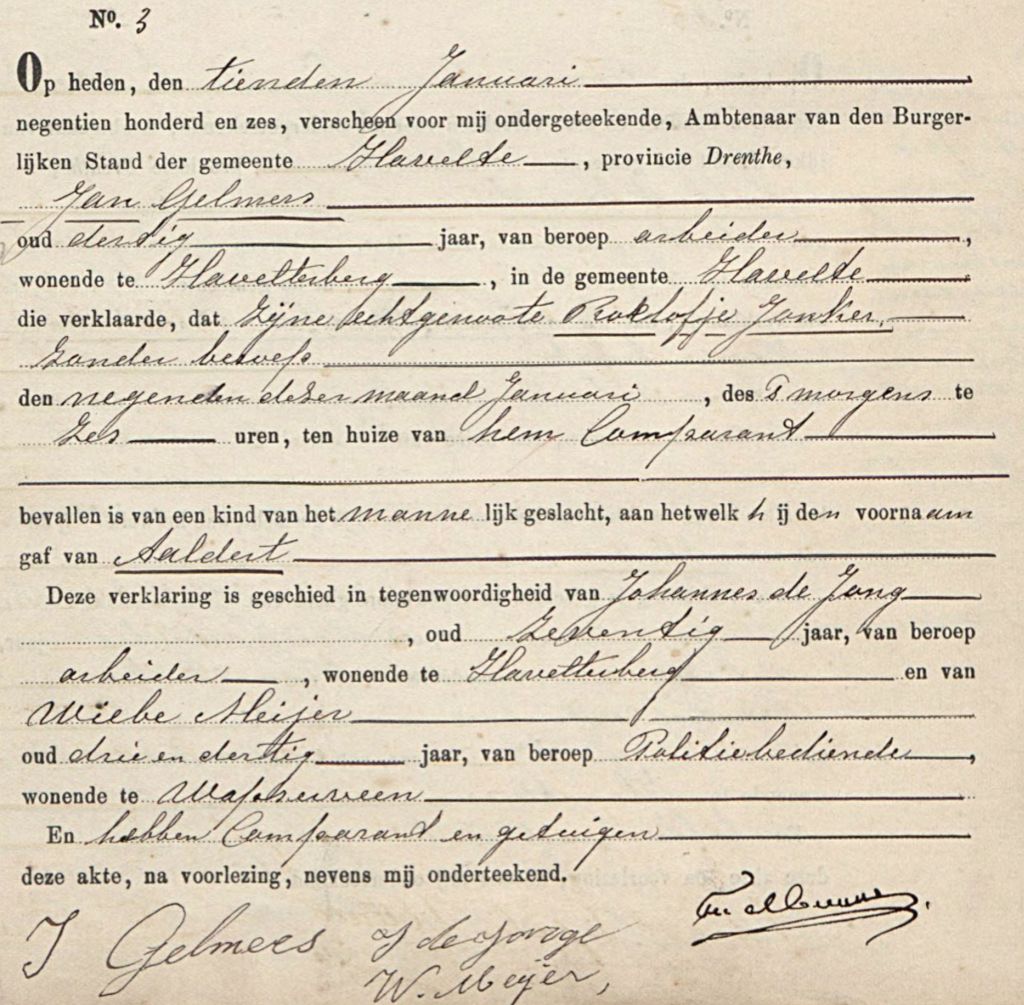 No. 3
Op heden, den tienden Januari
negentien honderd en zes, verscheen voor mij ondergeteekende, Ambtenaar van den Burger-
lijken Stand der gemeente Havelte, provincie Drenthe,
Jan Gelmers
oud dertig jaar, van beroep arbeider,
wonende te Havelterberg, in de gemeente Havelte
die verklaarde, dat zijne echtgenoote Roelofje Jonker,
zonder beroep
den negenden dezer maand Januari, des 's morgens te
zes uren, ten huize van hem Comparant
bevallen is van een kind van het mannelijk geslacht, aan hetwelk hij den voornaam
gaf van Aaldert
Deze verklaring is geschied in tegenwoordigheid van Johannes de Jong
, oud zeventig jaar, van beroep
arbeider, wonende te Havelterberg en van
Wiebe Meijer
oud drie en dertig jaar, van beroep Politiebediende,
wonende te Wapserveen
En hebben Comparant en getuigen
deze akte, na voorlezing, nevens mij onderteekend.
J Gelmers J de Jonge
W. Meijer,